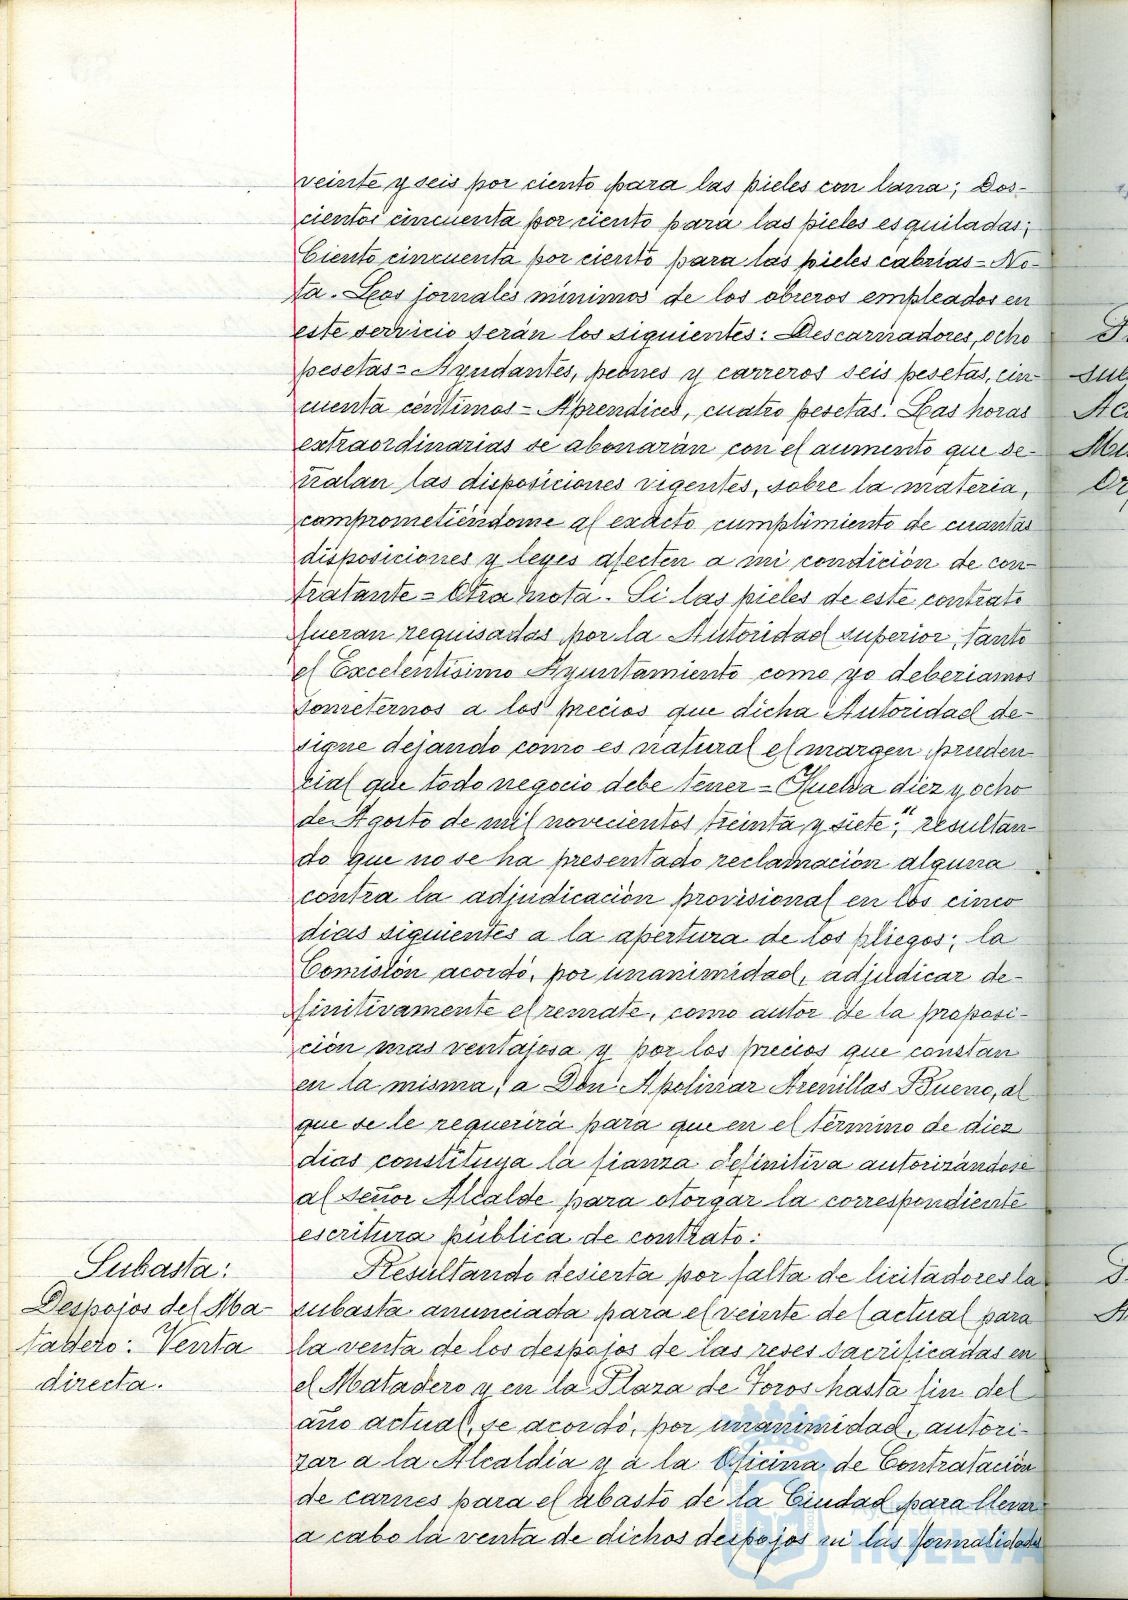 veinte y seis por ciento para las pieles con lana; Dos-
cientos cincuenta por ciento para las pieles esquiladas;
Ciento cincuenta por ciento para las pieles cabrías = No-
ta. Los jornales mínimos de los obreros empleados en
este servicio serán los siguientes: Descarnadores, ocho
pesetas = Ayudantes, peones y carreros seis pesetas, cin-
cuenta céntimos = Aprendices, cuatro pesetas. Las horas
extraordinarias se abonarán con el aumento que se-
ñalan las disposiciones vigentes, sobre la materia,
comprometiéndome al exacto cumplimiento de cuantas
disposiciones y leyes afecten a mi condición de con-
tratante = Otra nota. Si las pieles de este contrato
fueran requisadas por la Autoridad superior, tanto
el Excelentísimo Ayuntamiento como yo deberíamos
someternos a los precios que dicha Autoridad de-
signe dejando como es natural el margen pruden-
cial que todo negocio debe tener = Huelva diez y ocho
de Agosto de mil novecientos treinta y siete"; resultan-
do que no se ha presentado reclamación alguna
contra la adjudicación provisional en los cinco
dias siguientes a la apertura de los pliegos; la
Comisión acordó, por unanimidad, adjudicar de-
finitivamente el remate, como autor de la proposi-
ción mas ventajosa y por los precios que constan
en la misma, a Don Apolinar Arenillas Bueno, al
que se le requerirá para que en el término de diez
dias constituya la fianza definitiva autorizándose
al señor Alcalde para otorgar la correspondiente
escritura pública de contrato:
Subasta:
Despojos del Ma-
tadero: Venta
directa.
Resultando desierta por falta de licitadores la
subasta anunciada para el veinte del actual para
la venta de los despojos de las reses sacrificadas en
el Matadero y en la Plaza de Toros hasta fin del
año actual, se acordó, por unanimidad, autori-
zar a la Alcaldía y a la Oficina de Contratación
de carnes para el abasto de la Ciudad para llevar
a cabo la venta de dichos despojos sin las formalidades
Ayuntamiento
HUELVA